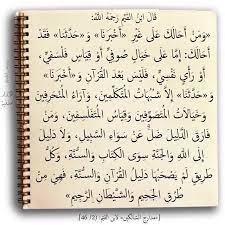 قال ابن القيم رحمه الله:
«وَمَنْ أَحَالَكَ عَلَى غَيْرِ «أَخْبَرَنَا» وَ«حَدَّثَنَا» فَقَدْ
أَحَالَكَ: إِمَّا عَلَى خَيَالٍ صُوفِيٍّ أَوْ قِيَاسٍ فَلْسَفِيٍّ،
أَوْ رَأْيٍ نَفْسِيٍّ، فَلَيْسَ بَعْدَ الْقُرْآنِ وَ«أَخْبَرَنَا»
وَ«حَدَّثَنَا» إِلَّا شُبُهَاتُ الْمُتَكَلِّمِينَ، وَآرَاءُ الْمُنْحَرِفِينَ
وَخَيَالَاتُ الْمُتَصَوِّفِينَ وَقِيَاسُ الْمُتَفَلْسِفِينَ، وَمَنْ
فَارَقَ الدَّلِيلَ ضَلَّ عَنْ سَوَاءِ السَّبِيلِ، وَلَا دَلِيلَ
إِلَى اللَّهِ وَالْجَنَّةِ سِوَى الْكِتَابِ وَالسُّنَّةِ، وَكُلُّ
طَرِيقٍ لَمْ يَصْحَبْهَا دَلِيلُ الْقُرْآنِ وَالسُّنَّةِ، فَهِيَ مِنْ
طُرُقِ الْجَحِيمِ وَالشَّيْطَانِ الرَّجِيمِ»
«مدارج السالكين» لابن القيم (2/ 46)